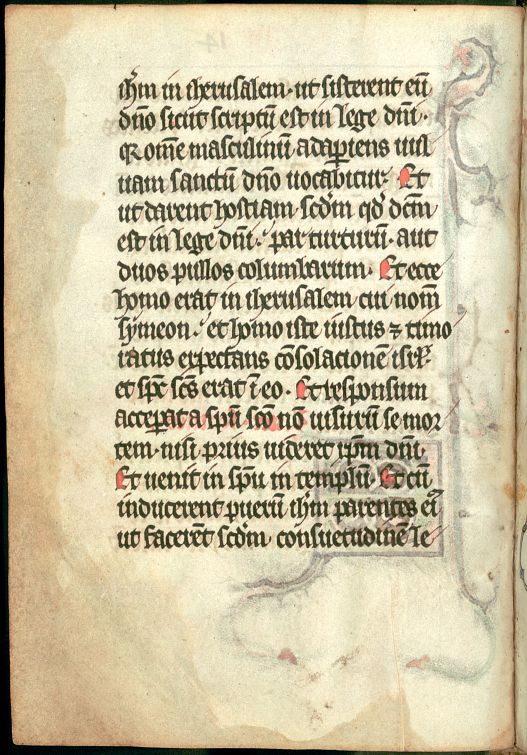 ih̄m in iherusalem · ut sisterent eū
dn̄o sicut scriptū est in lege dn̄i ·
Q omē masculinū adaperiens uul
uam sanctū dn̄o uocabitur · Et
ut darent hostiam scd̄m qd̄ dc̄m
est in lege dn̄i · par turturū · aut
duos pullos columbarum · Et ecce
homo erat in iherusalem cui nom̄
symeon · et homo iste iustus ⁊ timo
ratus expectans cōsolacionē isr̄l ·
et spc̄ sc̄s erat ī eo · Et responsum
acceperat a spū scō nō uisurū se mor
tem · nisi prius uideret xpm̄ dn̄i ·
Et uenit in spū in templū · Et cū
inducerent puerū ih̄m parentes ei᷒
ut facerēt scd̄m consuetudinē le